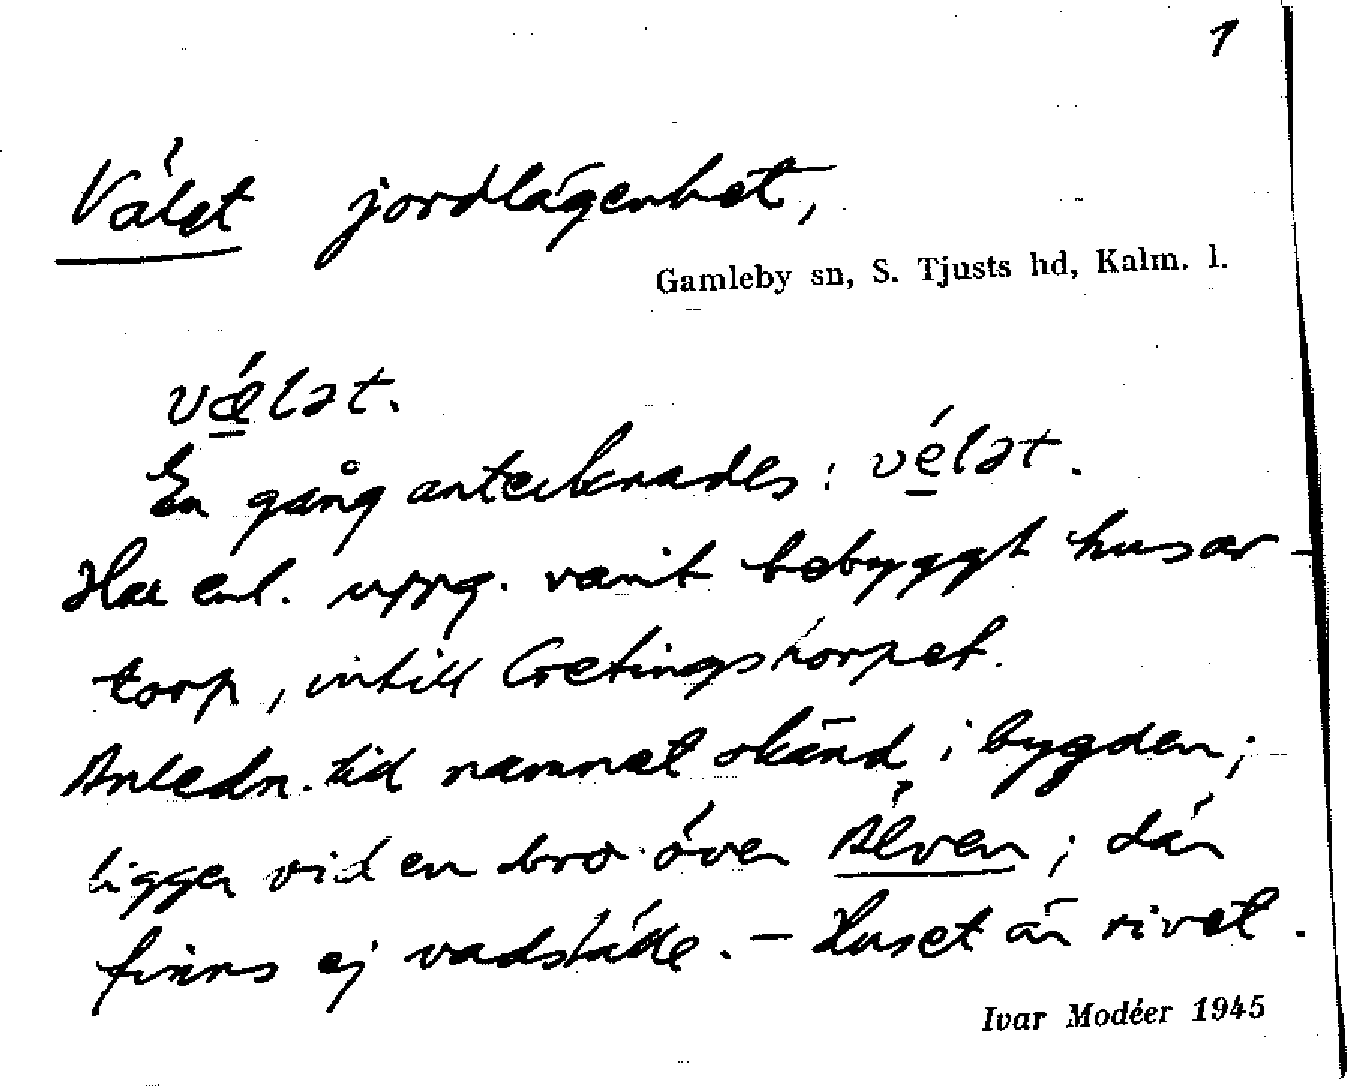 1
Välet jordlägenhet,
Gamleby sn, S. Tjusts hd, Kalm. l.
vǽlət.
En gång antecknades: vélət.
Har enl. uppg. varit bebyggt husar-
torp, intill Gretingstorpet.
Anledn. till namnet okänd i bygden;
ligger vid en bro över Älven; där
finns ej vadställe. - Huset är rivet.
Ivar Modéer 1945